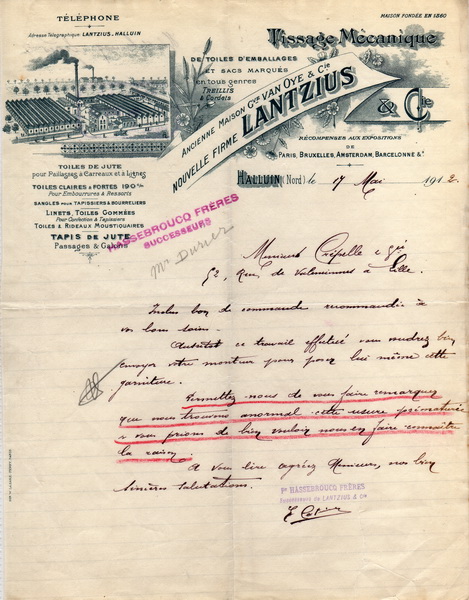 TÉLÉPHONE
Adresse Télégraphique LANTZIUS, HALLUIN
MAISON FONDÉE EN 1860
Tissage Mécanique
DE TOILES D'EMBALLAGES
ET SACS MARQUÉS
en tous genres
TREILLIS
& Cordets
ANCIENNE MAISON Gve VAN OYE & Cie
NOUVELLE FIRME LANTZIUS & Cie
RÉCOMPENSES AUX EXPOSITIONS
DE
PARIS, BRUXELLES, AMSTERDAM, BARCELONNE &a
TOILES DE JUTE
pour Paillages à Carreaux et à Lignes
TOILES CLAIRES & FORTES 190 c/m
Pour Embourrures & Ressorts
SANGLES POUR TAPISSIERS & BOURRELIERS
LINETS, TOILES GOMMÉES
Pour Confection & Tapissiers
TOILES & RIDEAUX MOUSTIQUAIRES
TAPIS DE JUTE
Passages & Galons
HALLUIN (Nord) le 17 Mai 1912
HASSEBROUCQ FRÈRES
SUCCESSEURS
Mr
Messieurs Crépelle & Gd
52, Rue de Valenciennes à Lille.
Inclus bon de commande recommandée à
vos bons soins.
Aussitôt ce travail effectué vous voudrez bien
envoyer votre monteur pour poser lui même cette
garniture.
Permettez nous de vous faire remarquer
que nous trouvons anormal cette usure prématurée
& vous prions de bien vouloir nous en faire connaître
la raison.
A vous lire agréez Messieurs, nos bien
sincères salutations.
Pr HASSEBROUCQ FRÈRES
Successeurs de LANTZIUS & Cie